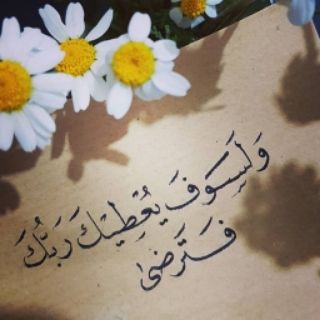 وَلَسَوفَ يُعْطِيكَ رَبُّكَ
فَتَرَضىٰ